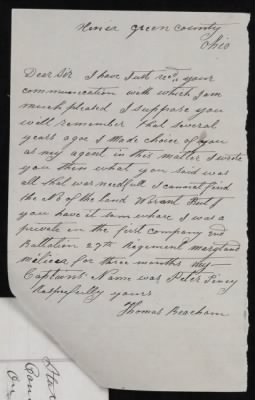 Xenia green county
Ohio
Dear Sir I have Just recd. your
communication with which I am
much pleased I suppose you
will remember that several
years ago I made choice of you
as my agent in this matter I wrote
you then what you said was
all that was needfull I cannot find
the No of the Land Warant But
you have it som whare I was a
private in the first company 2nd
Battalion 27th Regement maryland
melicea for three months my
Captains Name was Peter Piney
Respectfully yours
Thomas Beacham